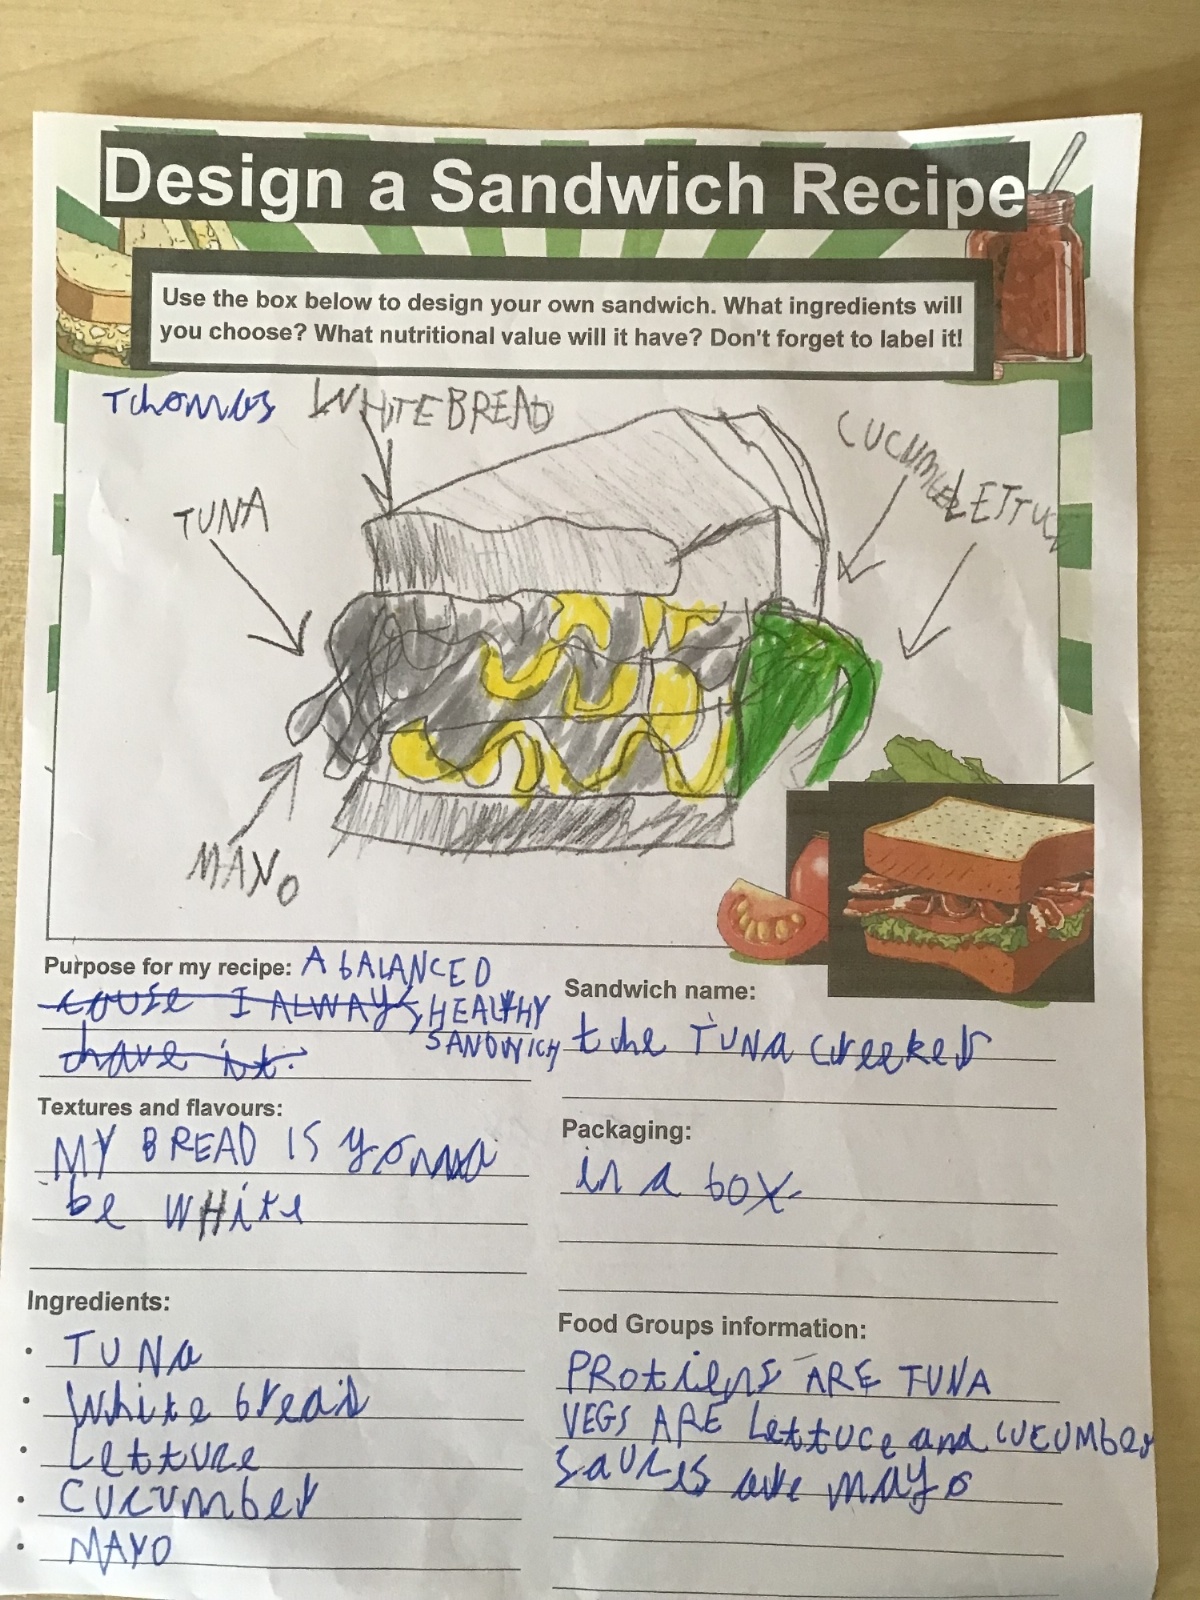 Design a Sandwich Recipe
Use the box below to design your own sandwich. What ingredients will
you choose? What nutritional value will it have? Don't forget to label it!
Thomas
WHITE BREAD
CUCUMBER
LETTUCE
TUNA
MAYO
Purpose for my recipe: A bALANCED
couse I ALWAYS, HEALTHY
have it. SANDWICH
Sandwich name:
the TUNA creeker
Textures and flavours:
MY BREAD IS gonna
be wHite
Packaging:
in a box.
Ingredients:
• TUNa
• White bread
• Lettuce
• Cucumber
• MAYO
Food Groups information:
PRotiens ARE TUNA
VEGS ARE Lettuce and cucUMber
sauces are mayo